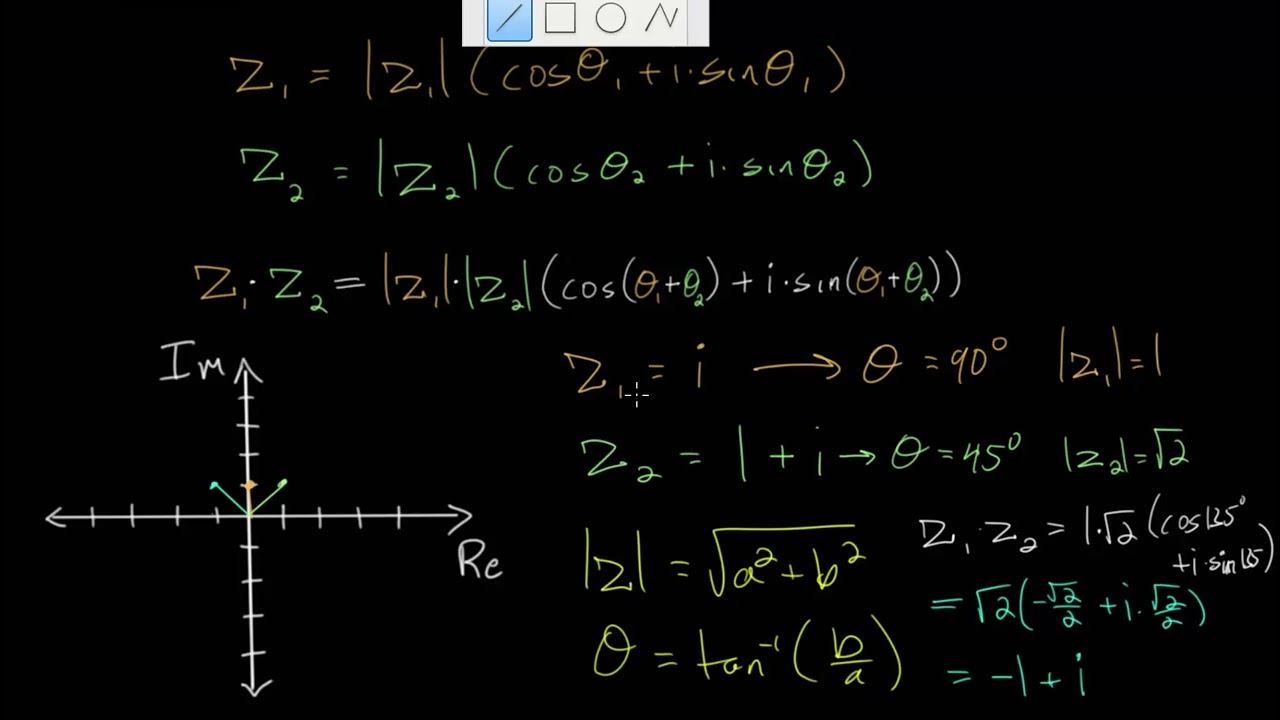 z₁ = |z₁| (cosθ₁ + i·sinθ₁)
z₂ = |z₂| (cosθ₂ + i·sinθ₂)
z₁·z₂ = |z₁|·|z₂| (cos(θ₁+θ₂) + i·sin(θ₁+θ₂))
Im
Re
z₁ = i ⟶ θ = 90° |z₁| = 1
z₂ = 1 + i → θ = 45° |z₂| = √2
|z| = √(a² + b²)
θ = tan⁻¹(b/a)
z₁·z₂ = 1·√2 (cos135°
+ i·sin135)
= √2(-√2/2 + i·√2/2)
= -1 + i